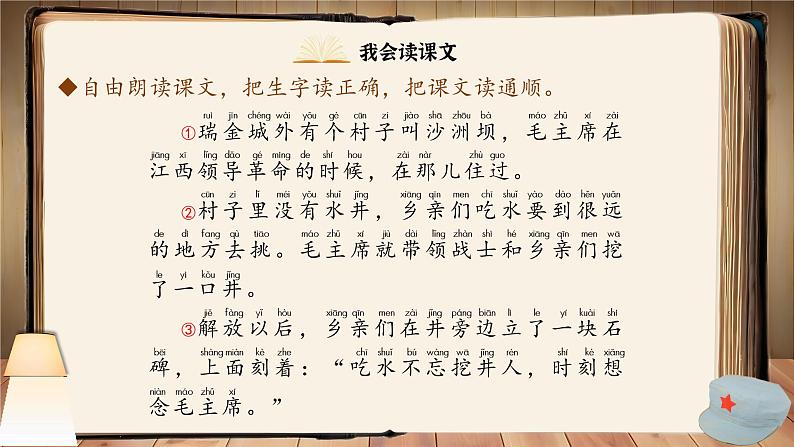 我会读课文
◆自由朗读课文，把生字读正确，把课文读通顺。
ruì jīn chéng wài yǒu gè cūn zi jiào shā zhōu bà máo zhǔ xí zài
①瑞金城外有个村子叫沙洲坝，毛主席在
jiāng xī lǐng dǎo gé mìng de shí hou zài nàr zhù guo
江西领导革命的时候，在那儿住过。
cūn zi lǐ méi yǒu shuǐ jǐng xiāng qīn men chī shuǐ yào dào hěn yuǎn
②村子里没有水井，乡亲们吃水要到很远
de dì fang qù tiāo máo zhǔ xí jiù dài lǐng zhàn shì hé xiāng qīn men wā
的地方去挑。毛主席就带领战士和乡亲们挖
le yì kǒu jǐng
了一口井。
jiě fàng yǐ hòu xiāng qīn men zài jǐng páng biān lì le yí kuài shí
③解放以后，乡亲们在井旁边立了一块石
bēi shàng miàn kè zhe chī shuǐ bú wàng wā jǐng rén shí kè xiǎng
碑，上面刻着：“吃水不忘挖井人，时刻想
niàn máo zhǔ xí
念毛主席。”